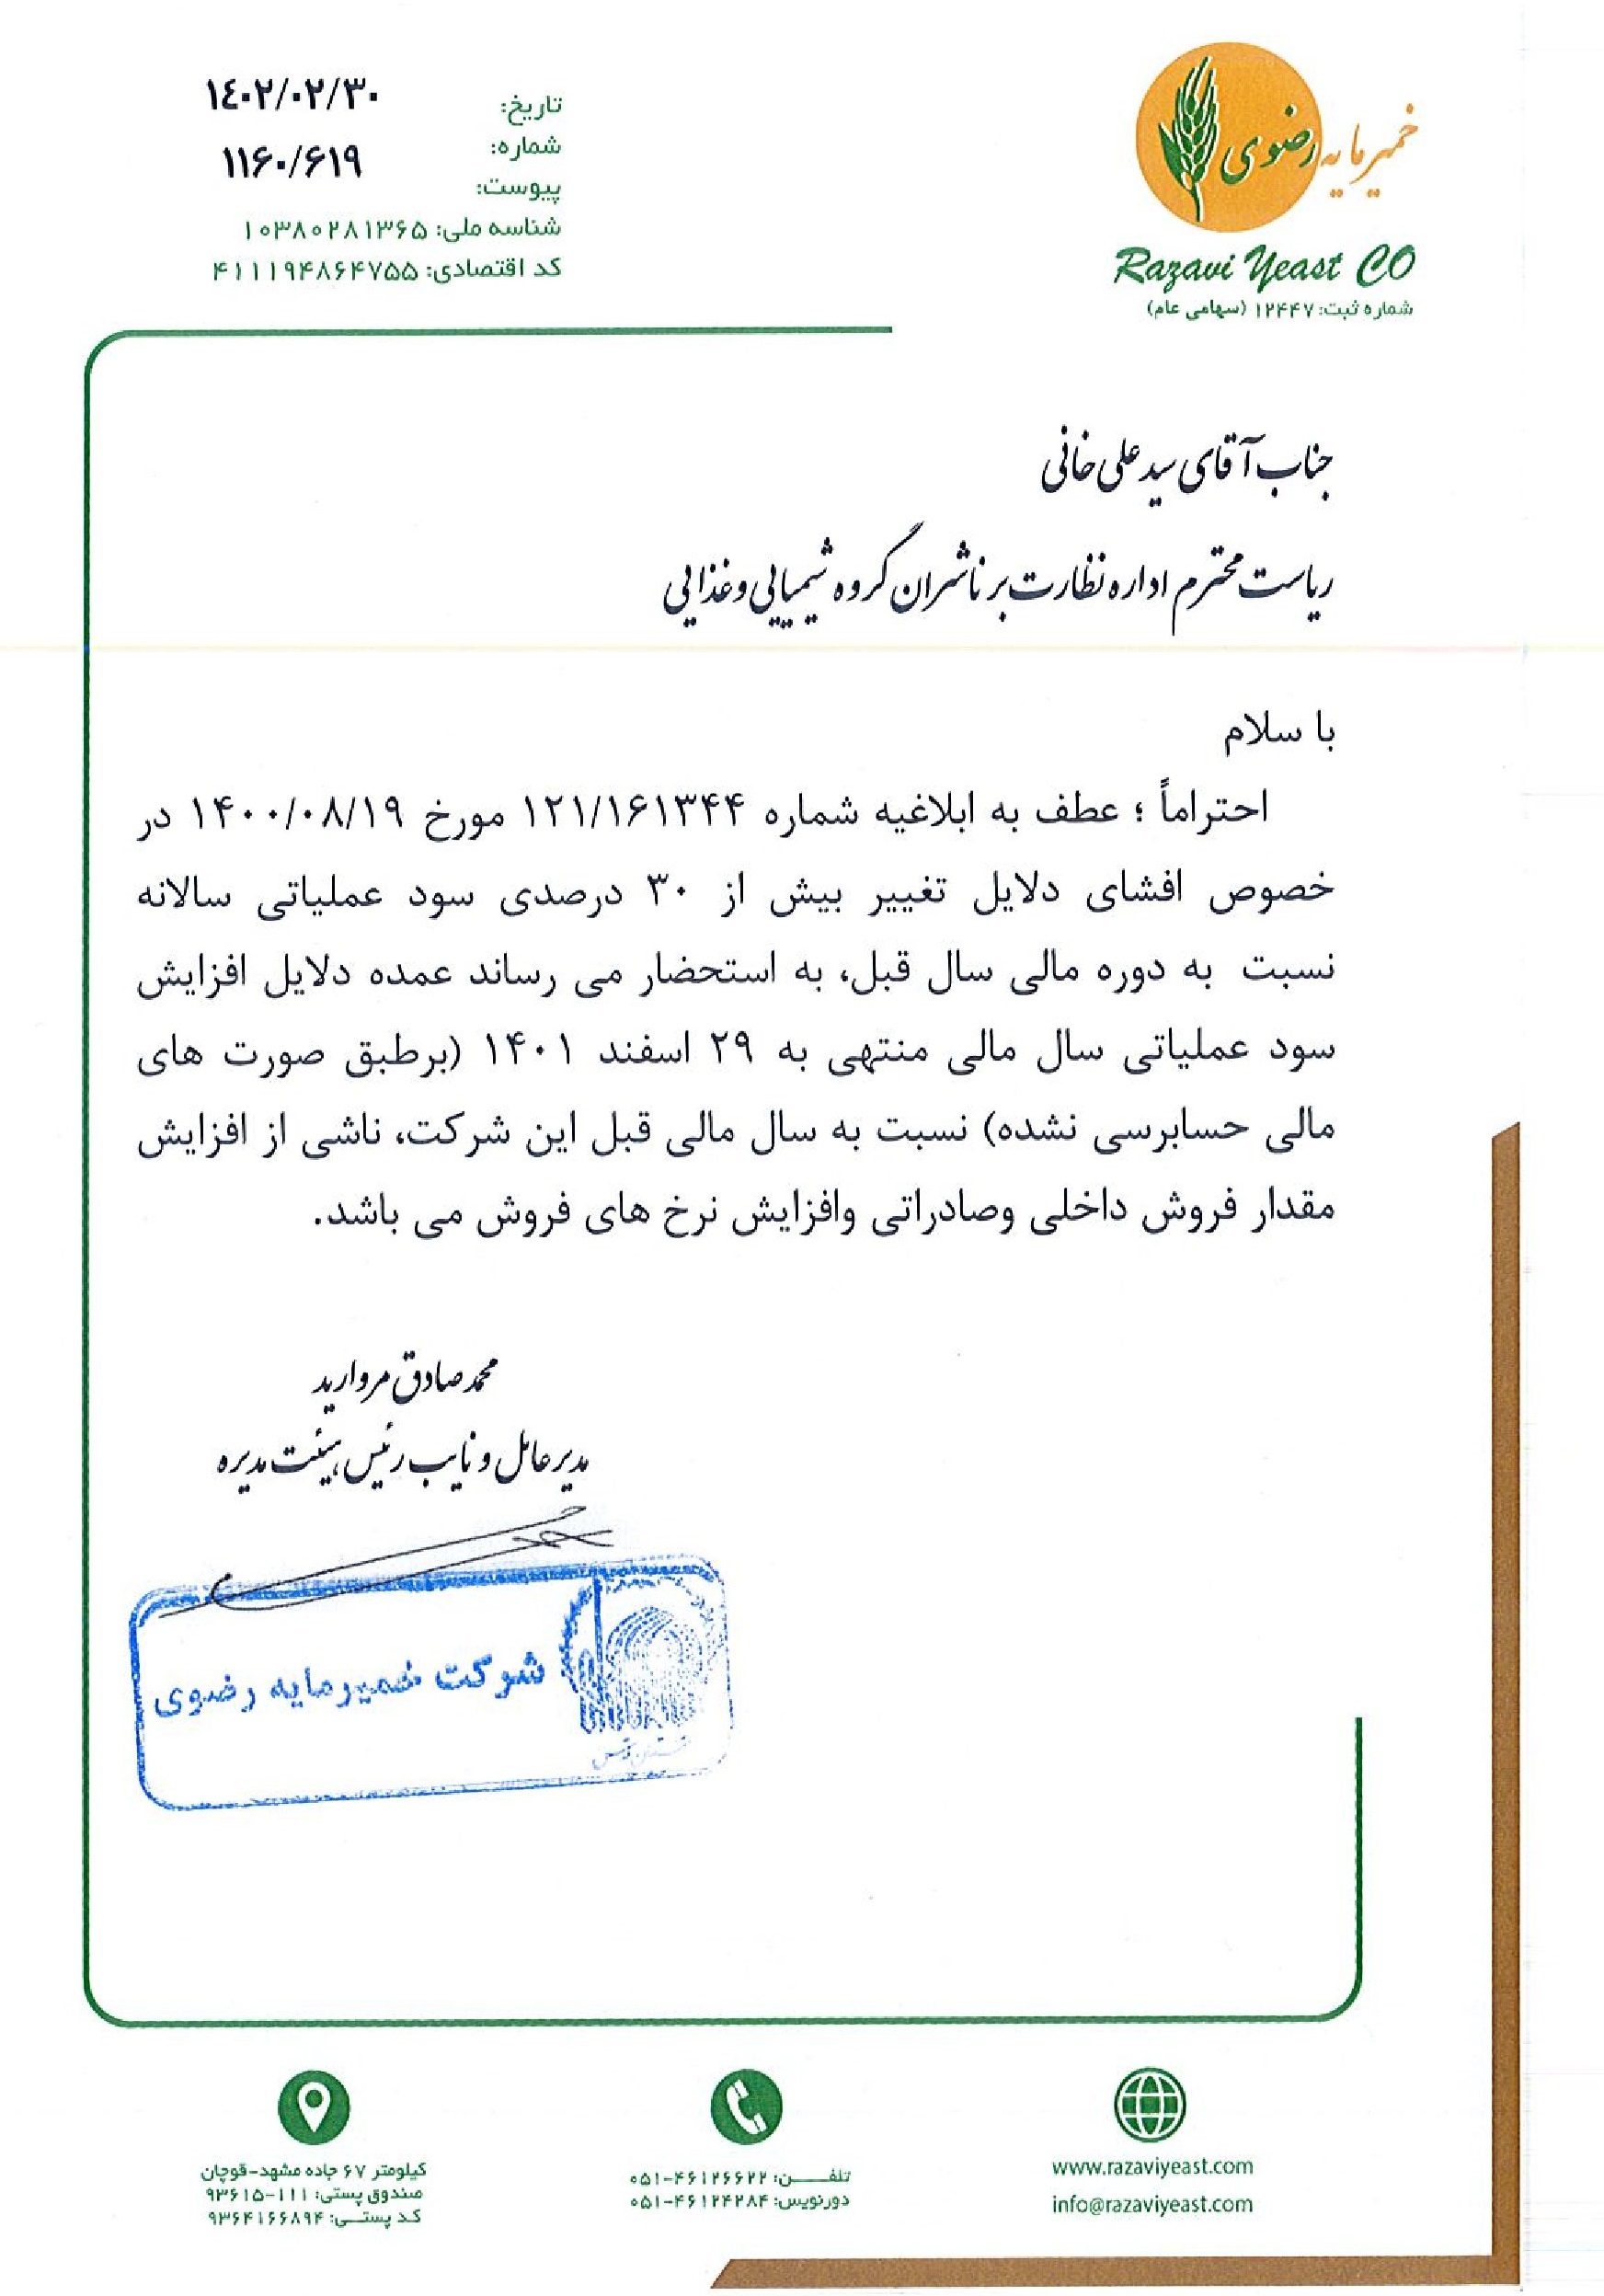 خمیرمایه رضوی
Razavi Yeast CO
شماره ثبت: ۱۲۴۴۷ (سهامی عام)
تاریخ: ۱٤۰۲/۰۲/۳۰
شماره: ۱۱۶۰/۶۱۹
پیوست:
شناسه ملی: ۱۰۳۸۰۲۸۱۳۶۵
کد اقتصادی: ۴۱۱۱۹۴۸۶۴۷۵۵
جناب آقای سید علی خانی
ریاست محترم اداره نظارت بر ناشران گروه شیمیایی و غذایی
با سلام
احتراماً ؛ عطف به ابلاغیه شماره ۱۲۱/۱۶۱۳۴۴ مورخ ۱۴۰۰/۰۸/۱۹ در
خصوص افشای دلایل تغییر بیش از ۳۰ درصدی سود عملیاتی سالانه
نسبت به دوره مالی سال قبل، به استحضار می رساند عمده دلایل افزایش
سود عملیاتی سال مالی منتهی به ۲۹ اسفند ۱۴۰۱ (برطبق صورت های
مالی حسابرسی نشده) نسبت به سال مالی قبل این شرکت، ناشی از افزایش
مقدار فروش داخلی وصادراتی وافزایش نرخ های فروش می باشد.
محمد صادق مروارید
مدیر عامل و نایب رئیس هیئت مدیره
شرکت خمیرمایه رضوی
www.razaviyeast.com
info@razaviyeast.com
تلفـــــن: ۰۵۱-۴۶۱۲۶۶۲۲
دورنویس: ۰۵۱-۴۶۱۲۴۲۸۴
کیلومتر ۶۷ جاده مشهد-قوچان
صندوق پستی: ۱۱۱-۹۳۶۱۵
کد پستــی: ۹۳۶۴۱۶۶۸۹۴